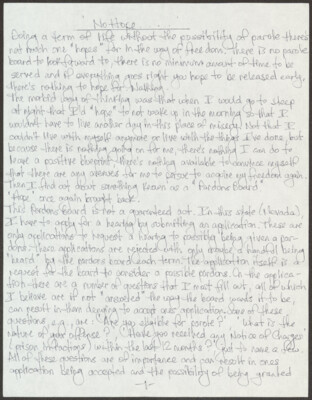 No Hope
Doing a term of life without the possibility of parole there's
not much one "hopes" for in the way of freedom. There is no parole
board to look forward to, there is no minimum amount of time to be
served and if everything goes right you hope to be released early,
there's nothing to hope for. Nothing.
The morbid way of thinking was that when I would go to sleep
at night that I'd "hope" to not wake up in the morning so that I
wouldn't have to live another day in this place of misery. Not that I
couldn't live with myself anymore or live with the things I've done, but
because there is nothing going on for me, there's nothing I can do to
leave a positive blueprint, there's nothing available to convince myself
that there are any avenues for me to pursue to acquire my freedom again.
Then I find out about something known as a "Pardons Board"
"Hope" once again brought back.
This Pardons Board is not a guaranteed act. In this state (Nevada),
I have to apply for a hearing by submitting an application. These are
only applications to request a hearing to possibly being given a par-
don. These applications are rejected with only maybe a handful being
"heard" by the pardons board each term. The application itself is a
request for the board to consider a possible pardon. On the applica-
tion there are a number of questions that I must fill out, all of which
I believe are if not "answered" the way the board wants it to be,
can result in them denying to accept ones application. Some of these
questions, e.g., are: "Are you eligible for parole?", "What is the
nature of your offense?", "Have you received any Notice of Charges
(prison infractions) within the last 12 months?", just to name a few.
All of these questions are of importance and can result in ones
application being accepted and the possibility of being granted
-1-